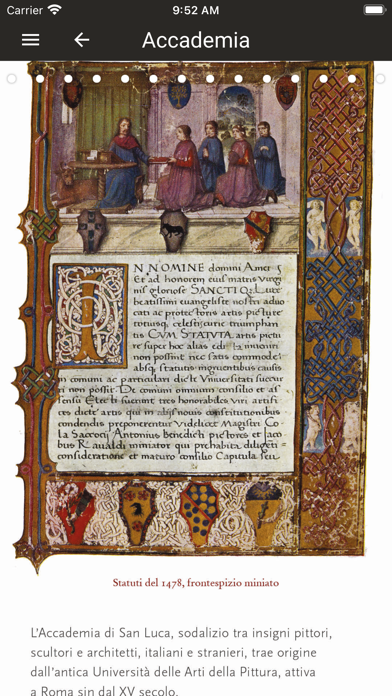 Carrier
9:52 AM
Accademia
N NOMINE domini Amen
Et ad honorem eius matris virgi
nis gloriose SANCTI Q Luce
beatissimi euangeliste nostri aduo
cati ac protectoris artis picture
totiusq; celestis curie triumphan
tis CUM STATUTA artis pictu
re super hoc alias edita inueniri
non possint nec satis commode
absq; statutis ingruentibus causis
in comuni ac particulari dicte Vniuersitati succur
ri non possit. De comuni omnium consilio et as
sensu Electi fuerint tres honorabiles viri artifi
ces dicte artis qui in abs nouis constitutionibus
condendis preponerentur videlicet Magistri Co
la Saccocij Antonius benedicti pictores et Jaco
bus Raualdi miniator qui prehabita diligenti
consideratione et maturo consilio Capitula seu
Statuti del 1478, frontespizio miniato
L'Accademia di San Luca, sodalizio tra insigni pittori,
scultori e architetti, italiani e stranieri, trae origine
dall'antica Università delle Arti della Pittura, attiva
a Roma sin dal XV secolo.